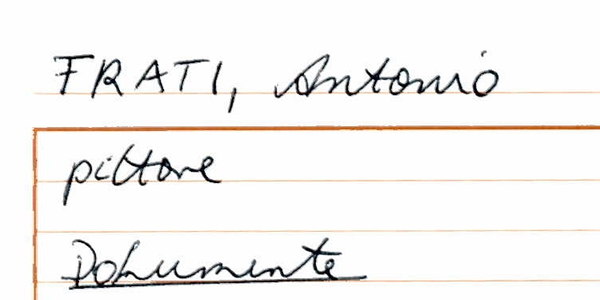 FRATI, Antonio
pittore
Dokumente